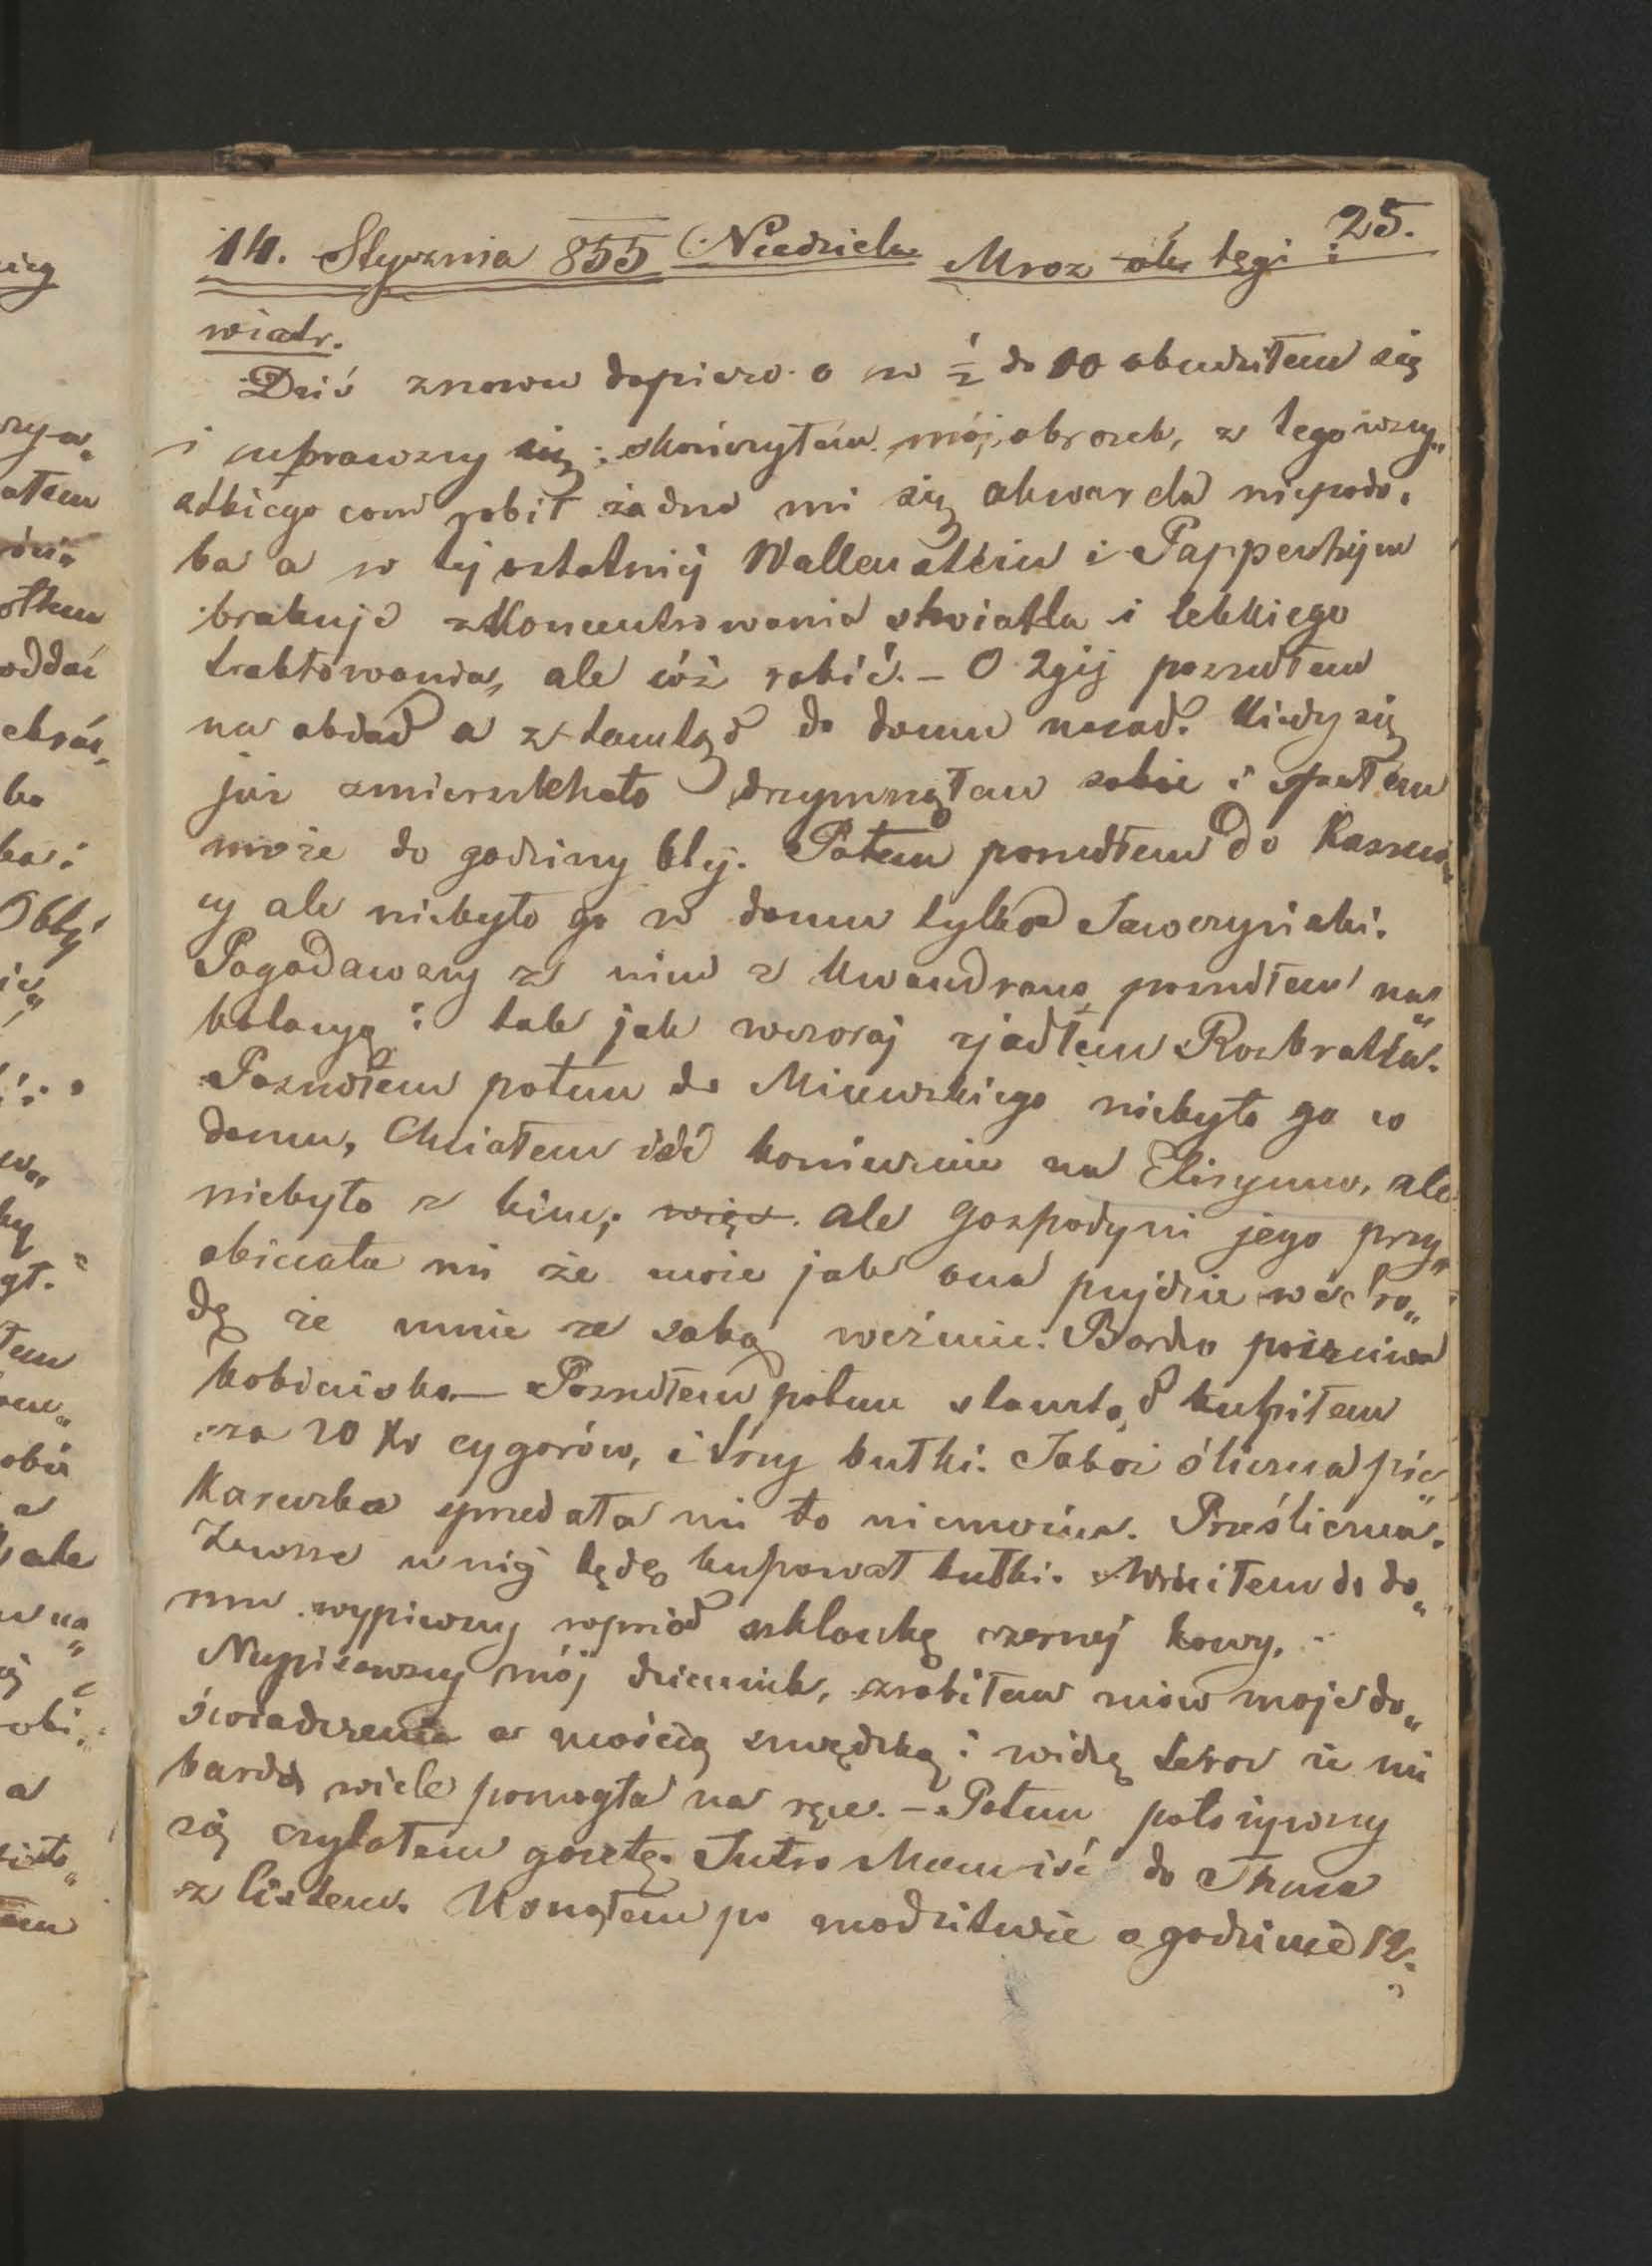 25.
14. Stycznia 855 Niedziela Mroz tęgi i
wiatr.
Dziś znowu dopiero o w ½ do 10 obudziłem się
i uprawszy się skończyłem mój obrozek, z tego wszy„
stkiego com robił żadna mi się akwarela niepodo„
ba a w tej ostatniej Wallenstein i Pappenhejm
brakuje zkoncentrowania shwiatla i lekkiego
traktowania, ale cóż robić. – O 2giej poszedłem
na obiad a z tamtąd do domu nazad. Kiedy się
już zmierzchało drzymnąłem sobie i spałem
może do godziny 6tej. Potem poszedłem do
cy ale niebyło go w domu tylko Sawczyński.
Pogadawszy z nim z kwandrans poszedłem na
kolacyą i tak jak wczoraj zjadłem Rozbratla.
Poszedłem potem do Micewskiego niebyło go w
domu, Chciałem iść koniecznie na Elizyum, ale
niebyło z kim, więc. ale gospodyni jego przy„
obiecała mi że może jak ona pujdzie we śro„
dę że mnie ze sobą weźmie. Bardzo poczciwa
kobiecisko. — Poszedłem potem stamtąd kupiłem
za 20 Xr cygarów, i trzy bułki. Jakaś śliczna pie„
karewka sprzedała mi to niemowa. Prześliczna.
Zawsze u niej będę kupował bułki. Wróciłem do do„
mu wypiwszy wprzód szklankę czarnej kawy.
Napisawszy mój dziennik, zrobiłem moje do„
świadczenie z maścią szwędzką i widzę teraz że mi
bardzo wiele pomogła na ręce. – Potem położywszy
się czytałem gazetę. Jutro Mam iść do
z listem. Usnąłem po modlitwie o godzinie 12.